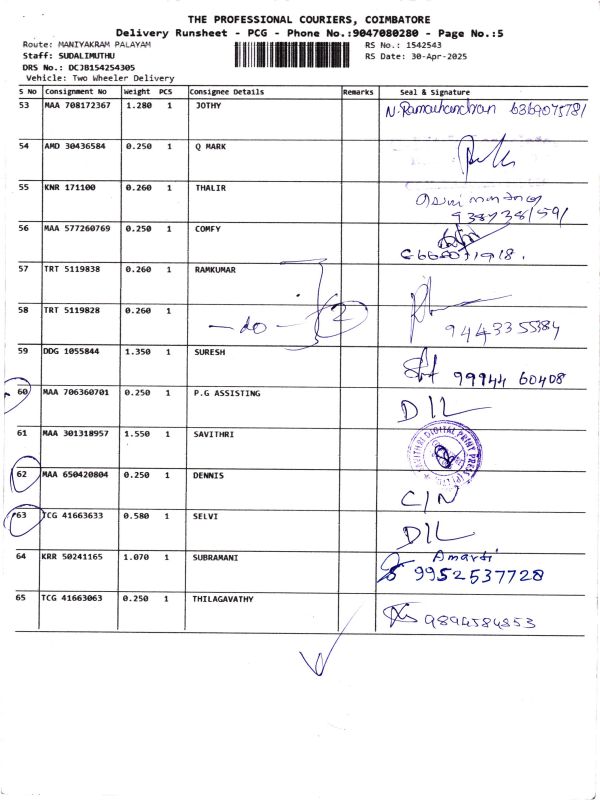 THE PROFESSIONAL COURIERS, COIMBATORE
Delivery Runsheet - PCG - Phone No.:9047080280 - Page No.:5
Route: MANIYAKRAM PALAYAM RS No.: 1542543
Staff: SUDALIMUTHU RS Date: 30-Apr-2025
DRS No.: DCJB154254305
Vehicle: Two Wheeler Delivery
S No Consignment No Weight PCS Consignee Details Remarks Seal & Signature
53 MAA 708172367 1.280 1 JOTHY N. Ramachandran 6369075781
54 AMD 30436584 0.250 1 Q MARK
55 KNR 171100 0.260 1 THALIR
56 MAA 577260769 0.250 1 COMFY
57 TRT 5119838 0.260 1 RAMKUMAR
58 TRT 5119828 0.260 1 -do- 2 9443355384
59 DDG 1055844 1.350 1 SURESH 99944 60408
60 MAA 706360701 0.250 1 P.G ASSISTING D/L
61 MAA 301318957 1.550 1 SAVITHRI SAVITHRI DIGITAL PRINT PRESS (P) LTD
62 MAA 650420804 0.250 1 DENNIS C/N
63 TCG 41663633 0.580 1 SELVI D/L
64 KRR 50241165 1.070 1 SUBRAMANI 9952537728
65 TCG 41663063 0.250 1 THILAGAVATHY 9894584353